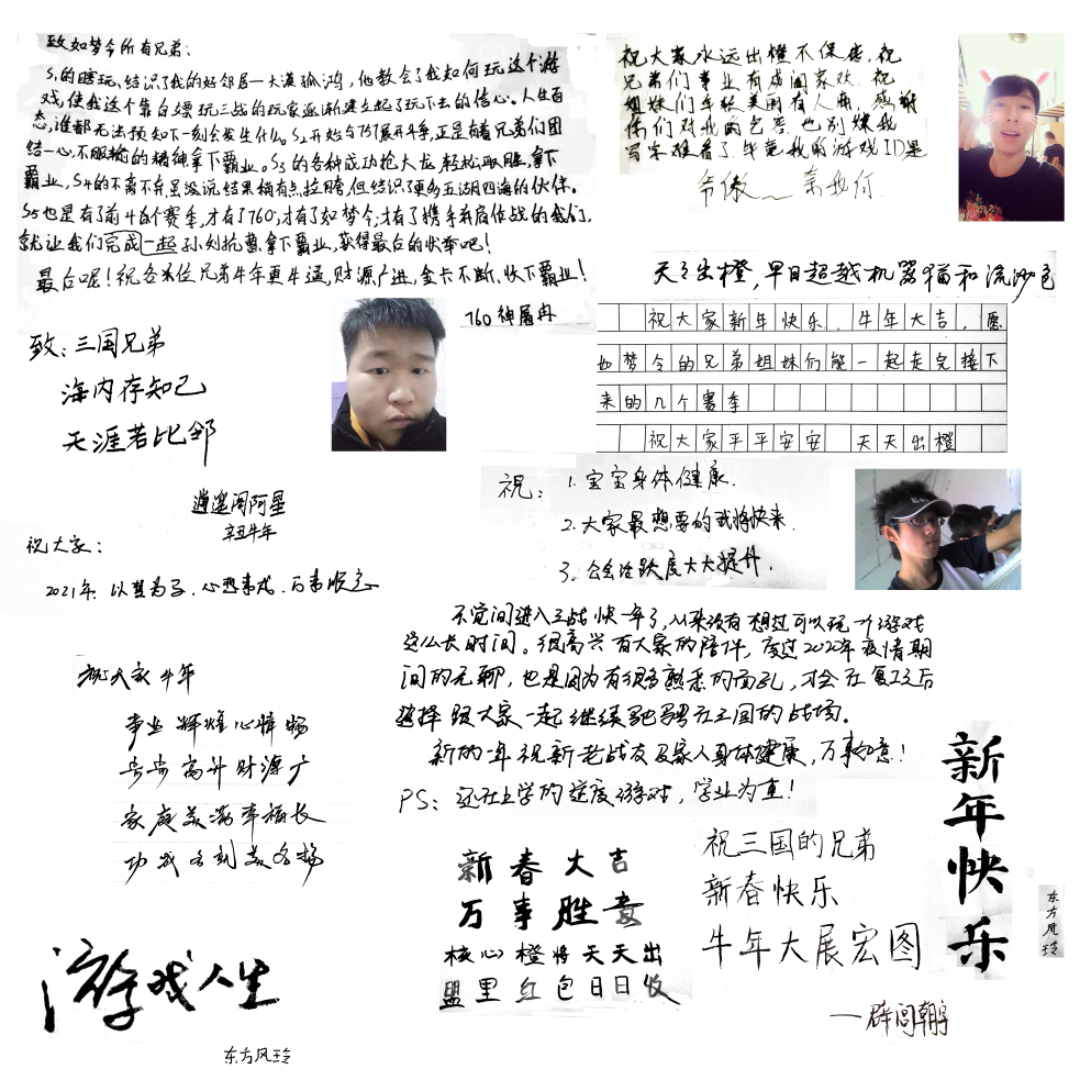 致如梦令所有兄弟:
S1的瞎玩、结识了我的好邻居一大漠孤鸿,他教会了我如何玩这个游
戏,使我这个靠白嫖玩三战的玩家逐渐建立起了玩下去的信心。人生百
态,谁都无法预知下一刻会发生什么。S2开始与757展开斗争,正是有着兄弟们团
结一心,不服输的精神拿下霸业。S3的各种成功抢大龙,轻松取胜,拿下
霸业,S4的不离不弃虽没说,结果稍有点拉胯,但结识了更多五湖四海的伙伴。
S5也是有了前4个赛季,才有了760,才有了如梦令,才有了携手并肩作战的我们,
就让我们完成一起孙刘抗曹,拿下霸业,获得最后的快奉吧!
最后呢!祝各位兄弟牛年更牛逼,财源广进,金卡不断,快下霸业!
760神屠冉
祝大家永远出橙不保底,祝
兄弟们事业有成阖家欢,祝
姐妹们年轻美丽有人商,感谢
你们对我的包容,也别嫌我
写字难看了,毕竟我的游戏ID是
天天出橙,早日超越机器猫和流沙包
祝大家新年快乐,牛年大吉,愿
如梦令的兄弟姐妹们能一起走完接下
来的几个赛季
祝大家平平安安 天天出橙
致:三国兄弟
海内存知己
天涯若比邻
逍遥阁阿星
辛丑牛年
祝:1.宝宝身体健康.
2.大家最想要的武将快来.
3.公会活跃度大大提升.
祝大家:
2021年,以梦为了,心想事成,万事顺意
不觉间进入三战快一年了,从来没有想过可以玩一个游戏
这么长时间。很高兴有大家的陪伴,度过2020年疫情期
间的无聊,也是因为有很多熟悉的面孔,才会在复工之后
选择跟大家一起继续驰骋在三国的战场。
新的一年祝新老战友及家人身体健康,万事如意!
PS:还在上学的适度游戏,学业为重!
祝大家牛年
事业辉煌心情畅
步步高升财源广
家庭美满幸福长
功成名就美名扬
新春大吉
万事胜意
核心橙将天天出
盟里红包日日收
祝三国的兄弟
新春快乐
牛年大展宏图
一群阎朝宇
新年快乐
东方风玲
游戏人生
东方风玲